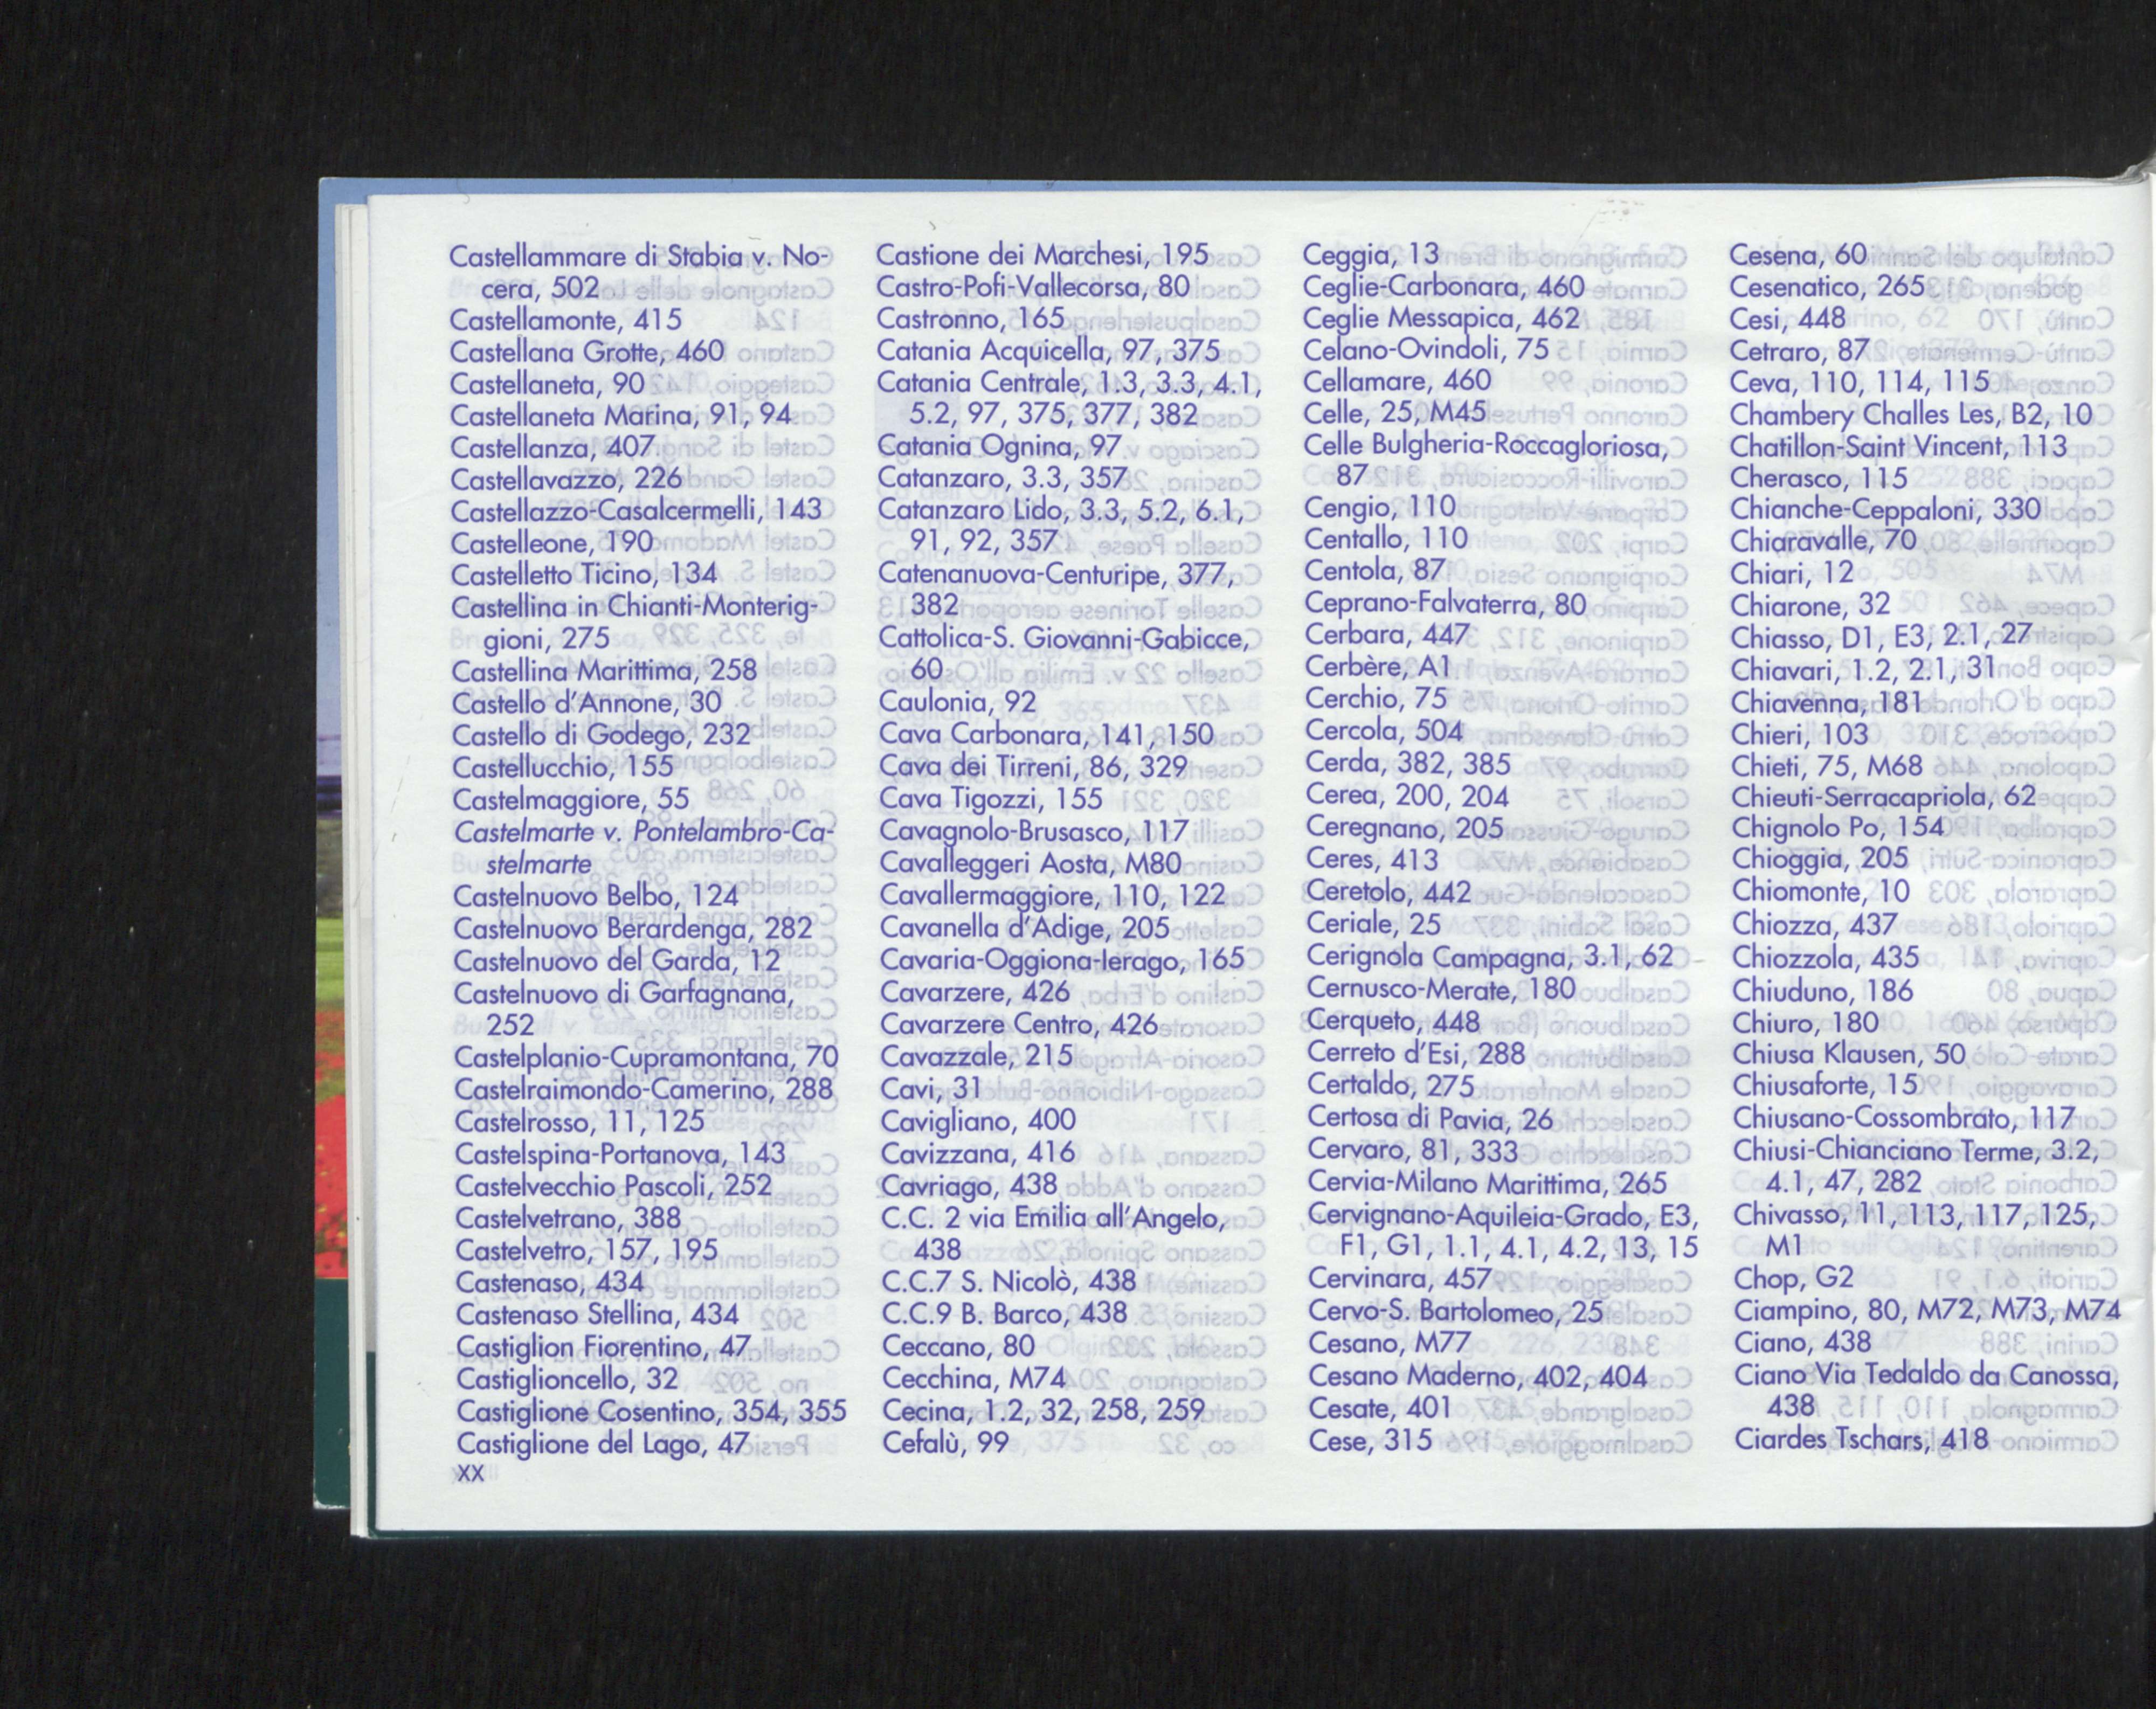 Castellammare di Stabia v. No-
cera, 502
Castellamonte, 415
Castellana Grotte, 460
Castellaneta, 90
Castellaneta Marina, 91, 94
Castellanza, 407
Castellavazzo, 226
Castellazzo-Casalcermelli, 143
Castelleone, 190
Castelletto Ticino, 134
Castellina in Chianti-Monterig-
gioni, 275
Castellina Marittima, 258
Castello d'Annone, 30
Castello di Godego, 232
Castellucchio, 155
Castelmaggiore, 55
Castelmarte v. Pontelambro-Ca-
stelmarte
Castelnuovo Belbo, 124
Castelnuovo Berardenga, 282
Castelnuovo del Garda, 12
Castelnuovo di Garfagnana,
252
Castelplanio-Cupramontana, 70
Castelraimondo-Camerino, 288
Castelrosso, 11, 125
Castelspina-Portanova, 143
Castelvecchio Pascoli, 252
Castelvetrano, 388
Castelvetro, 157, 195
Castenaso, 434
Castenaso Stellina, 434
Castiglion Fiorentino, 47
Castiglioncello, 32
Castiglione Cosentino, 354, 355
Castiglione del Lago, 47
XX
Castione dei Marchesi, 195
Castro-Pofi-Vallecorsa, 80
Castronno, 165
Catania Acquicella, 97, 375
Catania Centrale, 1.3, 3.3, 4.1,
5.2, 97, 375, 377, 382
Catania Ognina, 97
Catanzaro, 3.3, 357
Catanzaro Lido, 3.3, 5.2, 6.1,
91, 92, 357
Catenanuova-Centuripe, 377,
382
Cattolica-S. Giovanni-Gabicce,
60
Caulonia, 92
Cava Carbonara, 141, 150
Cava dei Tirreni, 86, 329
Cava Tigozzi, 155
Cavagnolo-Brusasco, 117
Cavalleggeri Aosta, M80
Cavallermaggiore, 110, 122
Cavanella d'Adige, 205
Cavaria-Oggiona-Ierago, 165
Cavarzere, 426
Cavarzere Centro, 426
Cavazzale, 215
Cavi, 31
Cavigliano, 400
Cavizzana, 416
Cavriago, 438
C.C. 2 via Emilia all'Angelo,
438
C.C.7 S. Nicolò, 438
C.C.9 B. Barco, 438
Ceccano, 80
Cecchina, M74
Cecina, 1.2, 32, 258, 259
Cefalù, 99
Ceggia, 13
Ceglie-Carbonara, 460
Ceglie Messapica, 462
Celano-Ovindoli, 75
Cellamare, 460
Celle, 25, M45
Celle Bulgheria-Roccagloriosa,
87
Cengio, 110
Centallo, 110
Centola, 87
Ceprano-Falvaterra, 80
Cerbara, 447
Cerbère, A1
Cerchio, 75
Cercola, 504
Cerda, 382, 385
Cerea, 200, 204
Ceregnano, 205
Ceres, 413
Ceretolo, 442
Ceriale, 25
Cerignola Campagna, 3.1, 62
Cernusco-Merate, 180
Cerqueto, 448
Cerreto d'Esi, 288
Certaldo, 275
Certosa di Pavia, 26
Cervaro, 81, 333
Cervia-Milano Marittima, 265
Cervignano-Aquileia-Grado, E3,
F1, G1, 1.1, 4.1, 4.2, 13, 15
Cervinara, 457
Cervo-S. Bartolomeo, 25
Cesano, M77
Cesano Maderno, 402, 404
Cesate, 401
Cese, 315
Cesena, 60
Cesenatico, 265
Cesi, 448
Cetraro, 87
Ceva, 110, 114, 115
Chambery Challes Les, B2, 10
Chatillon-Saint Vincent, 113
Cherasco, 115
Chianche-Ceppaloni, 330
Chiaravalle, 70
Chiari, 12
Chiarone, 32
Chiasso, D1, E3, 2.1, 27
Chiavari, 1.2, 2.1, 31
Chiavenna, 181
Chieri, 103
Chieti, 75, M68
Chieuti-Serracapriola, 62
Chignolo Po, 154
Chioggia, 205
Chiomonte, 10
Chiozza, 437
Chiozzola, 435
Chiuduno, 186
Chiuro, 180
Chiusa Klausen, 50
Chiusaforte, 15
Chiusano-Cossombrato, 117
Chiusi-Chianciano Terme, 3.2,
4.1, 47, 282
Chivasso, 11, 113, 117, 125,
M1
Chop, G2
Ciampino, 80, M72, M73, M74
Ciano, 438
Ciano Via Tedaldo da Canossa,
438
Ciardes Tschars, 418